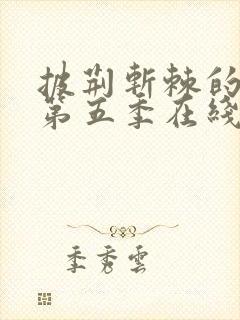 披荆斬棘的
第五季在綫
季秀雲